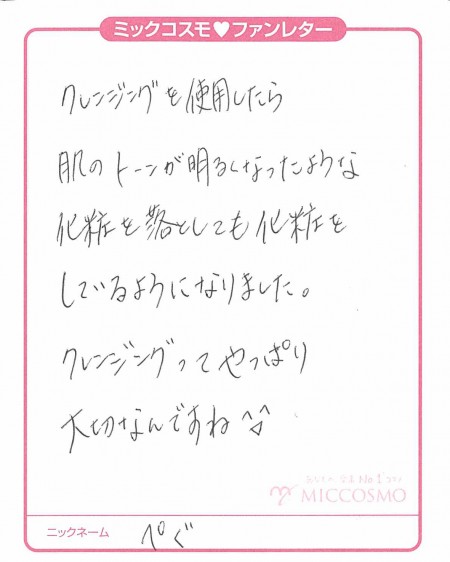 ミックコスモ♥ファンレター
クレンジングを使用したら
肌のトーンが明るくなったような
化粧を落としても化粧を
しているようになりました。
クレンジングってやっぱり
大切なんですね^^
MICCOSMO
ニックネーム ぺぐ